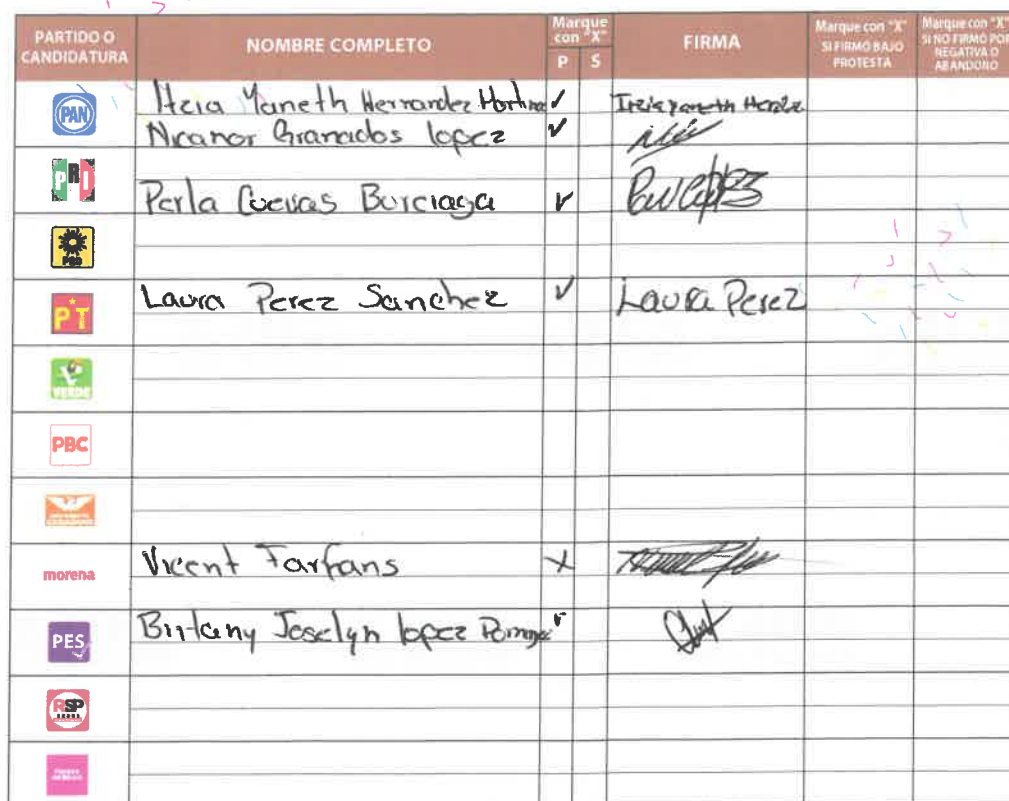 PARTIDO O CANDIDATURA
NOMBRE COMPLETO
Marque con "X"
P S
FIRMA
Marque con "X" SI FIRMÓ BAJO PROTESTA
Marque con "X" SI NO FIRMÓ POR NEGATIVA O ABANDONO
PAN Itzia Yaneth Hernandez
Nicanor Granados lopez
PRI
Perla Cuevas Burciaga
PRD
PT Laura Perez Sanchez Laura Perez
VERDE
PBC
morena Vicent Farfans
PES Joselyn lopez
RSP